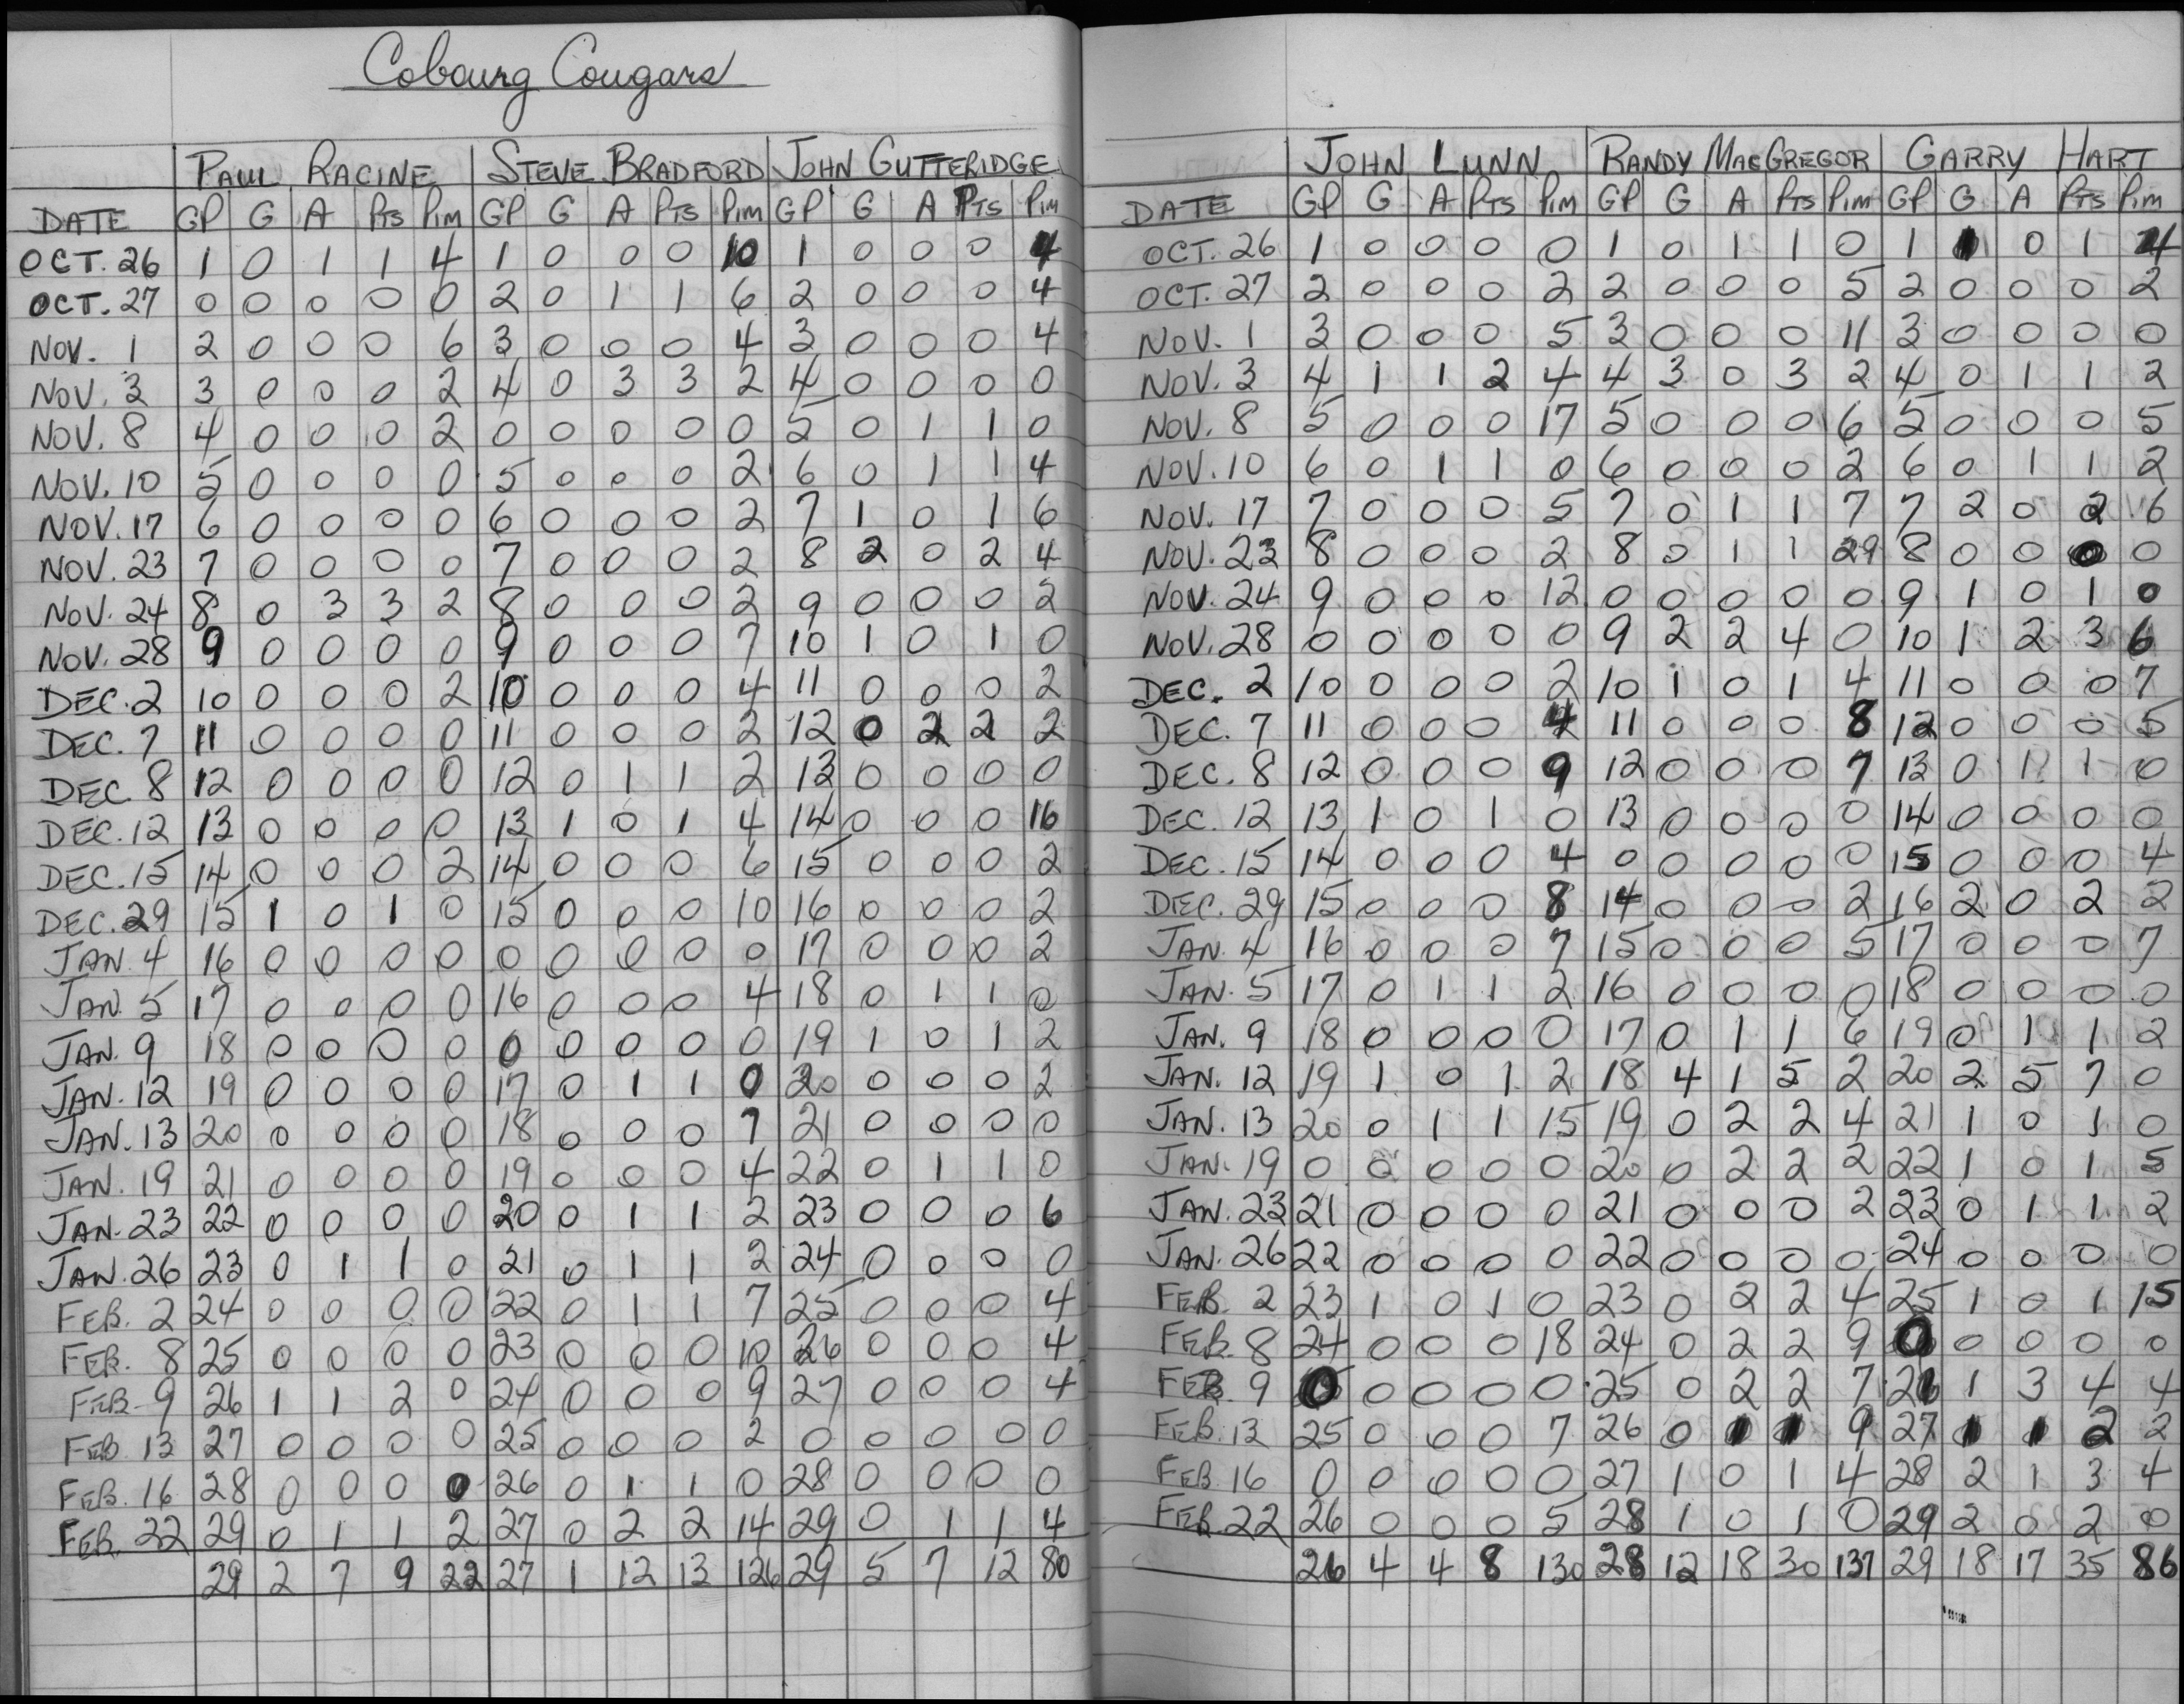 Cobourg Cougars
PAUL RACINE STEVE BRADFORD JOHN GUTTERIDGE
DATE GP G A PTS PIM GP G A PTS PIM GP G A PTS PIM
OCT. 26 1 0 1 1 4 1 0 0 0 10 1 0 0 0 4
OCT. 27 0 0 0 0 0 2 0 1 1 6 2 0 0 0 4
NOV. 1 2 0 0 0 6 3 0 0 0 4 3 0 0 0 4
NOV. 3 3 0 0 0 2 4 0 3 3 2 4 0 0 0 0
NOV. 8 4 0 0 0 2 0 0 0 0 0 5 0 1 1 0
NOV. 10 5 0 0 0 0 5 0 0 0 2 6 0 1 1 4
NOV. 17 6 0 0 0 0 6 0 0 0 2 7 1 0 1 6
NOV. 23 7 0 0 0 0 7 0 0 0 2 8 2 0 2 4
NOV. 24 8 0 3 3 2 8 0 0 0 2 9 0 0 0 2
NOV. 28 9 0 0 0 0 9 0 0 0 7 10 1 0 1 0
DEC. 2 10 0 0 0 2 10 0 0 0 4 11 0 0 0 2
DEC. 7 11 0 0 0 0 11 0 0 0 2 12 0 2 2 2
DEC. 8 12 0 0 0 0 12 0 1 1 2 13 0 0 0 0
DEC. 12 13 0 0 0 0 13 1 0 1 4 14 0 0 0 16
DEC. 15 14 0 0 0 2 14 0 0 0 6 15 0 0 0 2
DEC. 29 15 1 0 1 0 15 0 0 0 10 16 0 0 0 2
JAN. 4 16 0 0 0 0 0 0 0 0 0 17 0 0 0 2
JAN. 5 17 0 0 0 0 16 0 0 0 4 18 0 1 1 0
JAN. 9 18 0 0 0 0 0 0 0 0 0 19 1 0 1 2
JAN. 12 19 0 0 0 0 17 0 1 1 0 20 0 0 0 2
JAN. 13 20 0 0 0 0 18 0 0 0 7 21 0 0 0 0
JAN. 19 21 0 0 0 0 19 0 0 0 4 22 0 1 1 0
JAN. 23 22 0 0 0 0 20 0 1 1 2 23 0 0 0 6
JAN. 26 23 0 1 1 0 21 0 1 1 2 24 0 0 0 0
FEB. 2 24 0 0 0 0 22 0 1 1 7 25 0 0 0 4
FEB. 8 25 0 0 0 0 23 0 0 0 10 26 0 0 0 4
FEB. 9 26 1 1 2 0 24 0 0 0 9 27 0 0 0 4
FEB 13 27 0 0 0 0 25 0 0 0 2 0 0 0 0 0
FEB. 16 28 0 0 0 0 26 0 1 1 0 28 0 0 0 0
FEB. 22 29 0 1 1 2 27 0 2 2 14 29 0 1 1 4
29 2 7 9 22 27 1 12 13 126 29 5 7 12 80
JOHN LUNN RANDY MACGREGOR GARRY HART
DATE GP G A PTS PIM GP G A PTS PIM GP G A PTS PIM
OCT. 26 1 0 0 0 0 1 0 1 1 0 1 1 0 1 4
OCT. 27 2 0 0 0 2 2 0 0 0 5 2 0 0 0 2
NOV. 1 3 0 0 0 5 3 0 0 0 11 3 0 0 0 0
NOV. 3 4 1 1 2 4 4 3 0 3 2 4 0 1 1 2
NOV. 8 5 0 0 0 17 5 0 0 0 6 5 0 0 0 5
NOV. 10 6 0 1 1 0 6 0 0 0 2 6 0 1 1 2
NOV. 17 7 0 0 0 5 7 0 1 1 7 7 2 0 2 6
NOV. 23 8 0 0 0 2 8 0 1 1 29 8 0 0 0 0
NOV. 24 9 0 0 0 12 0 0 0 0 0 9 1 0 1 0
NOV. 28 0 0 0 0 0 9 2 2 4 0 10 1 2 3 6
DEC. 2 10 0 0 0 2 10 1 0 1 4 11 0 0 0 7
DEC. 7 11 0 0 0 4 11 0 0 0 8 12 0 0 0 5
DEC. 8 12 0 0 0 9 12 0 0 0 7 13 0 1 1 0
DEC. 12 13 1 0 1 0 13 0 0 0 0 14 0 0 0 0
DEC. 15 14 0 0 0 4 0 0 0 0 0 15 0 0 0 4
DEC. 29 15 0 0 0 8 14 0 0 0 2 16 2 0 2 2
JAN. 4 16 0 0 0 7 15 0 0 0 5 17 0 0 0 7
JAN. 5 17 0 1 1 2 16 0 0 0 0 18 0 0 0 0
JAN. 9 18 0 0 0 0 17 0 1 1 6 19 0 1 1 2
JAN. 12 19 1 0 1 2 18 4 1 5 2 20 2 5 7 0
JAN. 13 20 0 1 1 15 19 0 2 2 4 21 1 0 1 0
JAN. 19 0 0 0 0 0 20 0 2 2 2 22 1 0 1 5
JAN. 23 21 0 0 0 0 21 0 0 0 2 23 0 1 1 2
JAN. 26 22 0 0 0 0 22 0 0 0 0 24 0 0 0 0
FEB. 2 23 1 0 1 0 23 0 2 2 4 25 1 0 1 15
FEB. 8 24 0 0 0 18 24 0 2 2 9 0 0 0 0 0
FEB. 9 0 0 0 0 0 25 0 2 2 7 26 1 3 4 4
FEB. 13 25 0 0 0 7 26 0 1 1 9 27 1 1 2 2
FEB. 16 0 0 0 0 0 27 1 0 1 4 28 2 1 3 4
FEB. 22 26 0 0 0 5 28 1 0 1 0 29 2 0 2 0
26 4 4 8 130 28 12 18 30 137 29 18 17 35 86